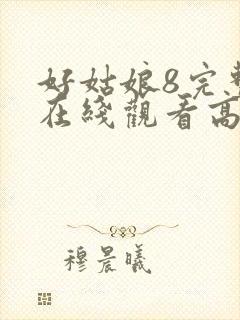 好姑娘8完整
在线觀看高
穆晨曦